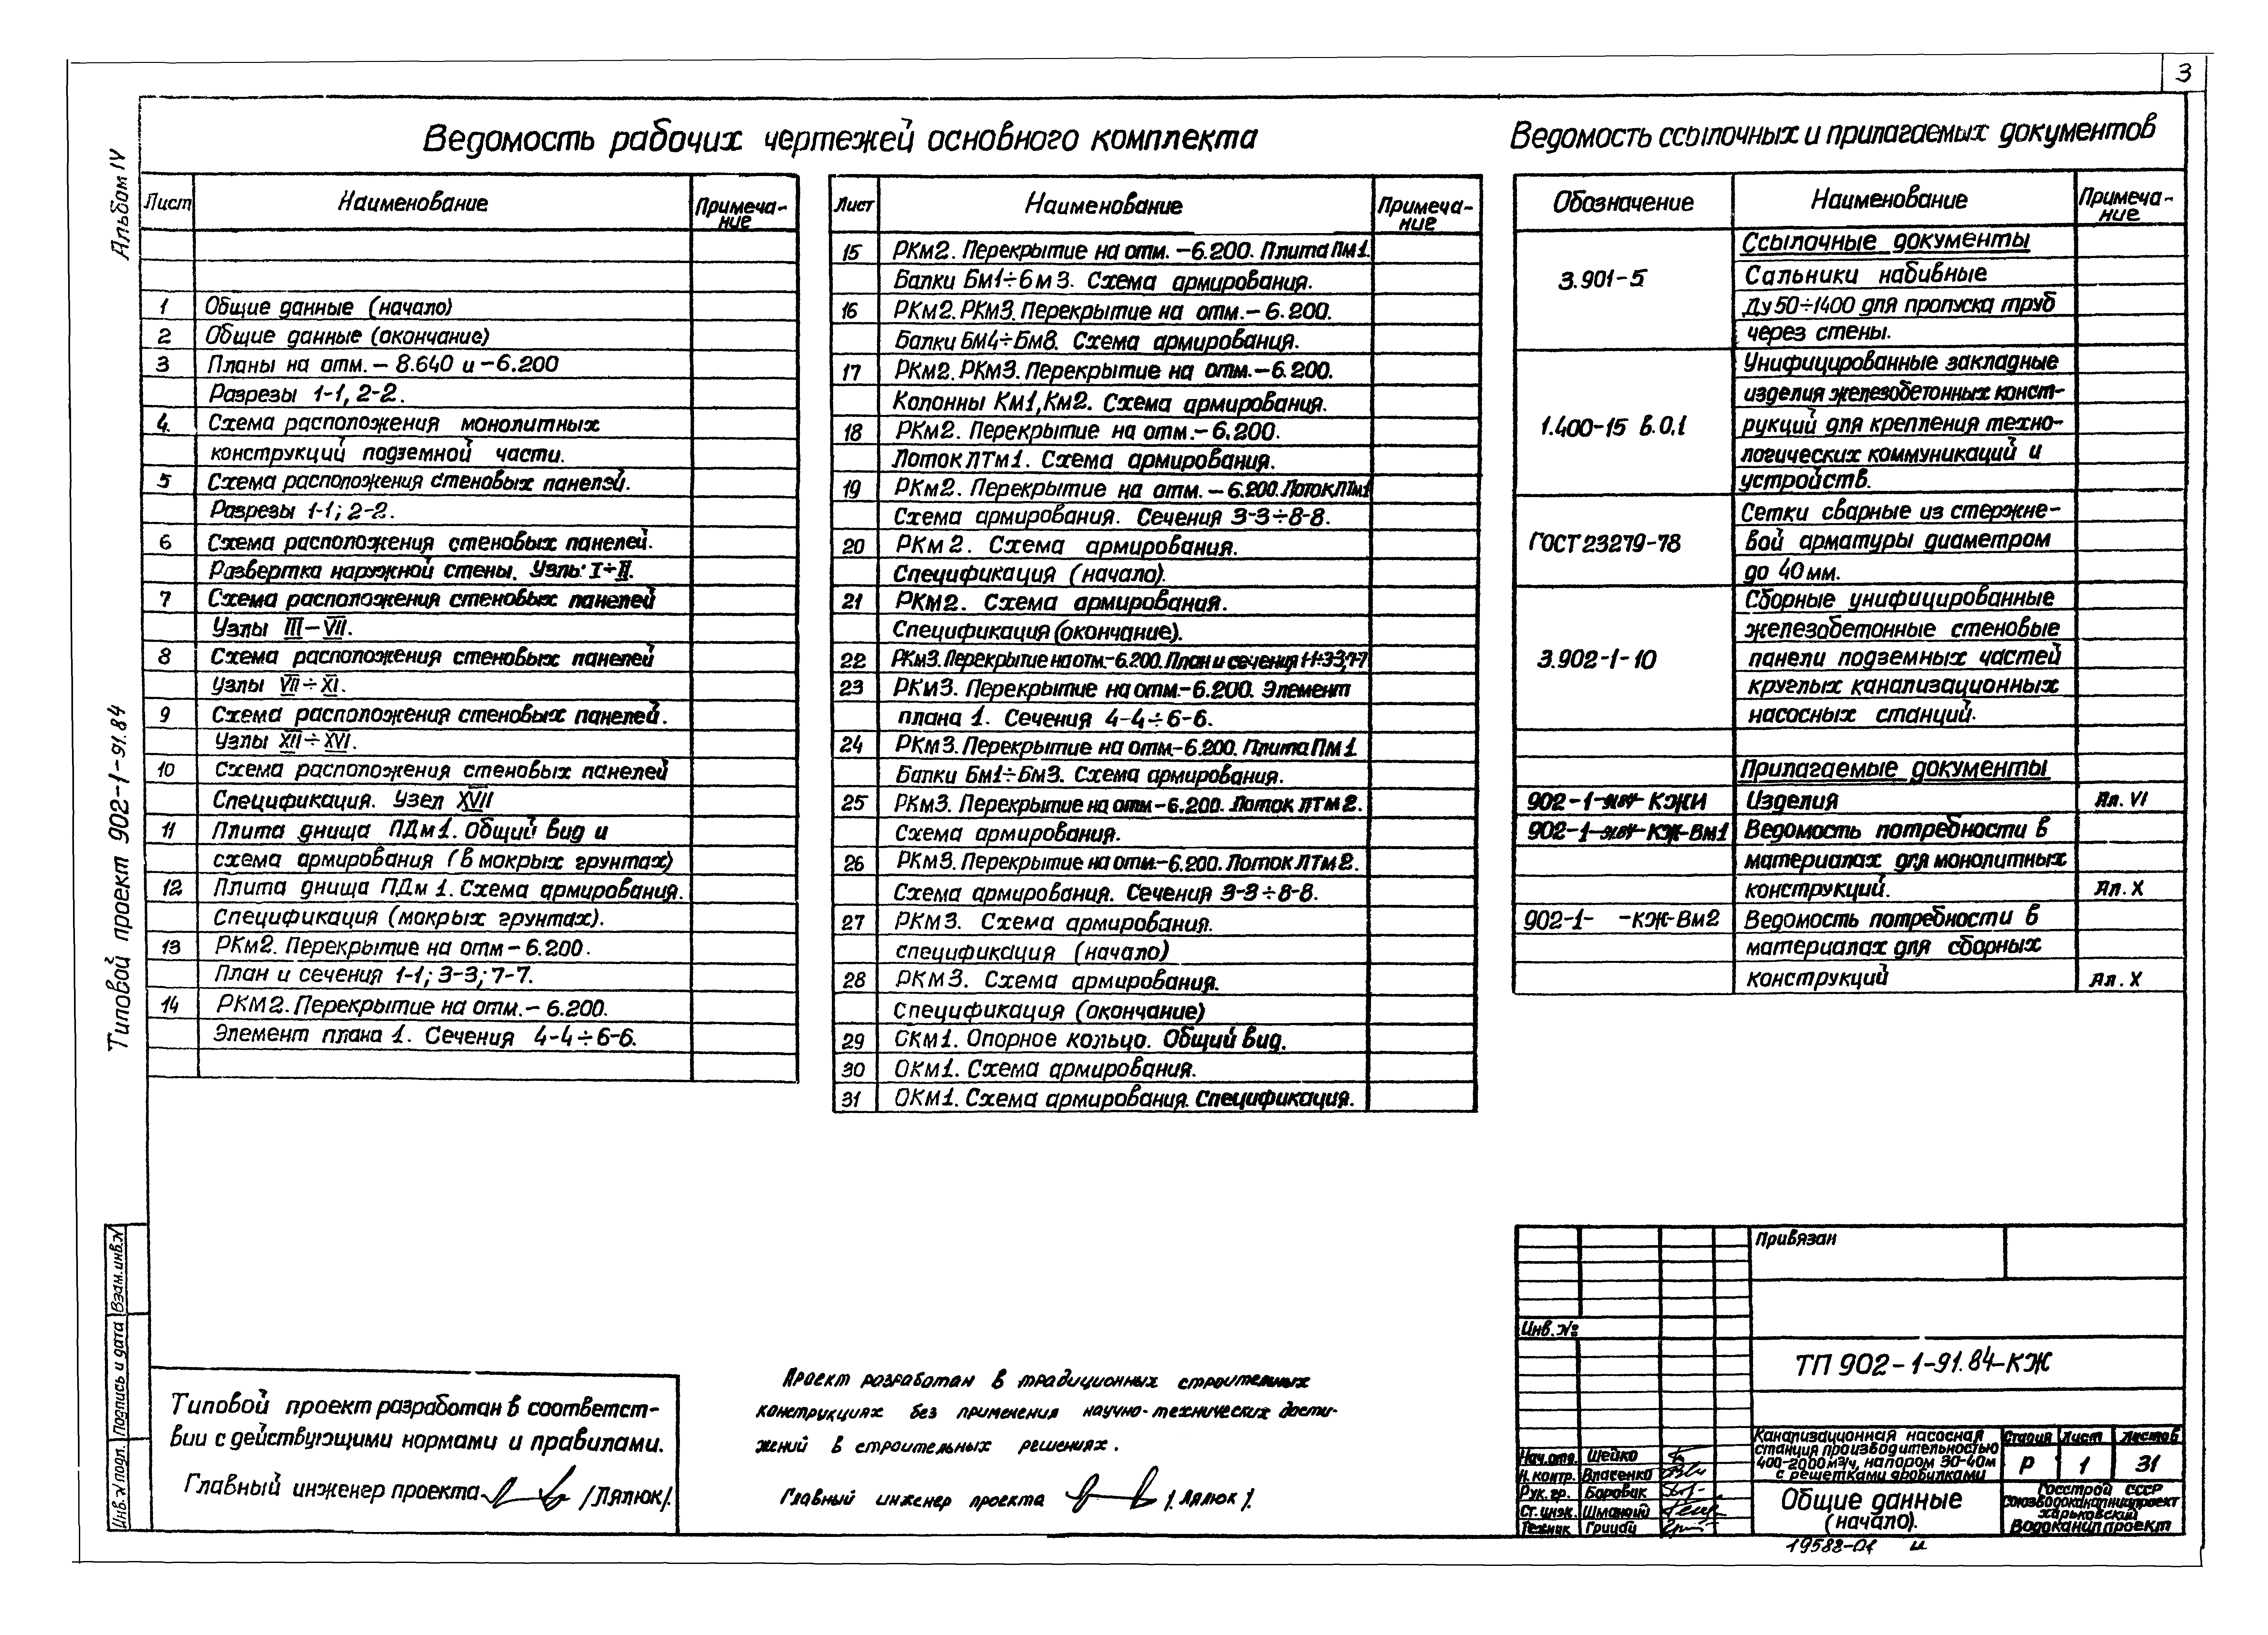 3
Альбом IV
Типовой проект 902-1-91.84
Ведомость рабочих чертежей основного комплекта
Лист Наименование Примеча-
ние
1 Общие данные (начало)
2 Общие данные (окончание)
3 Планы на отм. – 8.640 и –6.200
Разрезы 1-1, 2-2.
4. Схема расположения монолитных
конструкций подземной части.
5 Схема расположения стеновых панелей.
Разрезы 1-1; 2-2.
6 Схема расположения стеновых панелей.
Развертка наружной стены. Узлы I÷II.
7 Схема расположения стеновых панелей
Узлы III–VII.
8 Схема расположения стеновых панелей
Узлы VII÷XI.
9 Схема расположения стеновых панелей.
Узлы XII÷XVI.
10 Схема расположения стеновых панелей
Спецификация. Узел XVII
11 Плита днища ПДм1. Общий вид и
схема армирования (в мокрых грунтах)
12 Плита днища ПДм1. Схема армирования.
Спецификация (мокрых грунтах).
13 РКм2. Перекрытие на отм – 6.200.
План и сечения 1-1; 3-3; 7-7.
14 РКм2. Перекрытие на отм. – 6.200.
Элемент плана 1. Сечения 4-4÷6-6.
Лист Наименование Примеча-
ние
15 РКм2. Перекрытие на отм. –6.200. Плита Пм1.
Балки Бм1÷Бм3. Схема армирования.
16 РКм2. РКм3. Перекрытие на отм. – 6.200.
Балки Бм4÷Бм8. Схема армирования.
17 РКм2. РКм3. Перекрытие на отм. –6.200.
Колонны Км1, Км2. Схема армирования.
18 РКм2. Перекрытие на отм. – 6.200.
Лоток ЛТм1. Схема армирования.
19 РКм2. Перекрытие на отм. – 6.200. Лоток ЛТм1
Схема армирования. Сечения 3-3÷8-8.
20 РКм2. Схема армирования.
Спецификация (начало).
21 РКм2. Схема армирования.
Спецификация (окончание).
22 РКм3. Перекрытие на отм.–6.200. План и сечения 1-1÷3-3, 7-7
23 РКм3. Перекрытие на отм–6.200. Элемент
плана 1. Сечения 4-4÷6-6.
24 РКм3. Перекрытие на отм–6.200. Плита Пм1.
Балки Бм1÷Бм3. Схема армирования.
25 РКм3. Перекрытие на отм–6.200. Лоток ЛТм2.
Схема армирования.
26 РКм3. Перекрытие на отм.–6.200. Лоток ЛТм2.
Схема армирования. Сечения 3-3÷8-8.
27 РКм3. Схема армирования.
спецификация (начало)
28 РКм3. Схема армирования.
Спецификация (окончание)
29 ОКм1. Опорное кольцо. Общий вид.
30 ОКм1. Схема армирования.
31 ОКм1. Схема армирования. Спецификация.
Ведомость ссылочных и прилагаемых документов
Обозначение Наименование Примеча-
ние
Ссылочные документы
3.901-5 Сальники набивные
Ду 50÷1400 для пропуска труб
через стены.
Унифицированные закладные
изделия железобетонных конст-
1.400-15 в.0,1 рукций для крепления техно-
логических коммуникаций и
устройств.
Сетки сварные из стержне-
ГОСТ 23279-78 вой арматуры диаметром
до 40мм.
Сборные унифицированные
железобетонные стеновые
3.902-1-10 панели подземных частей
круглых канализационных
насосных станций.
Прилагаемые документы
902-1- КЖИ Изделия Ал. VI
902-1- КЖ-Вм1 Ведомость потребности в
материалах для монолитных
конструкций. Ал. X
902-1- -КЖ-Вм2 Ведомость потребности в
материалах для сборных
конструкций Ал. X
Инв.N подл. Подпись и дата Взам.инв.N
Типовой проект разработан в соответст-
вии с действующими нормами и правилами.
Главный инженер проекта /Лялюк/.
Проект разработан в традиционных строительных
конструкциях без применения научно-технических дости-
жений в строительных решениях.
Главный инженер проекта /Лялюк/.
Привязан
Инв.№
ТП 902-1-91.84-КЖ
Нач.отд. Шейко
Н. контр. Власенко
Рук. гр. Боровик
Ст. инж.
Техник
Канализационная насосная
станция производительностью
400-2000м³/ч, напором 30-40м
с решетками дробилками
Стадия Лист Листов
Р 1 31
Общие данные
(начало).
Госстрой СССР
Союзводоканалниипроект
Харьковский
Водоканалпроект
19588-01